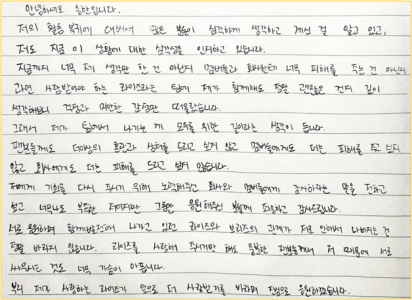 안녕하세요 승한입니다.
저의 활동 복귀에 대해서 많은 분들이 심각하게 생각하고 계신 걸 알고 있고,
저도 지금 이 상황에 대한 심각성을 인지하고 있습니다.
지금까지 너무 제 생각만 한 건 아닌지 멤버들과 회사한테 너무 피해를 주는 건 아닌지
과연 사랑받아야 하는 라이즈라는 팀에 제가 함께해도 정말 괜찮은 건지 깊이
생각해보니 걱정과 미안한 감정만 떠올랐습니다.
그래서 제가 팀에서 나가는 게 모두를 위한 길이라는 생각이 듭니다.
팬분들께도 더이상의 혼란과 상처를 드리고 싶지 않고 멤버들에게도 더는 피해를 주고 싶지
않고 회사에게도 더는 피해를 드리고 싶지 않습니다.
저에게 기회를 다시 주시기 위해 노력해주신 회사와 멤버들에게 감사하다는 말을 전하고
싶고 너무나도 부족한 저에게 그동안 응원해주신 분들께 죄송하고 감사드립니다.
서로 응원하며 함께 나가고 있던 라이즈와 브리즈의 관계가 저로 인해서 나빠지는 건
정말 바라지 않습니다. 라이즈를 사랑해 주시기만 해도 충분한 팬분들께서 저 때문에 서로
싸우시는 것도 너무 가슴이 아픕니다.
부디 제가 사랑하는 라이즈가 앞으로 더 사랑받기를 바라며 진심으로 응원하겠습니다.